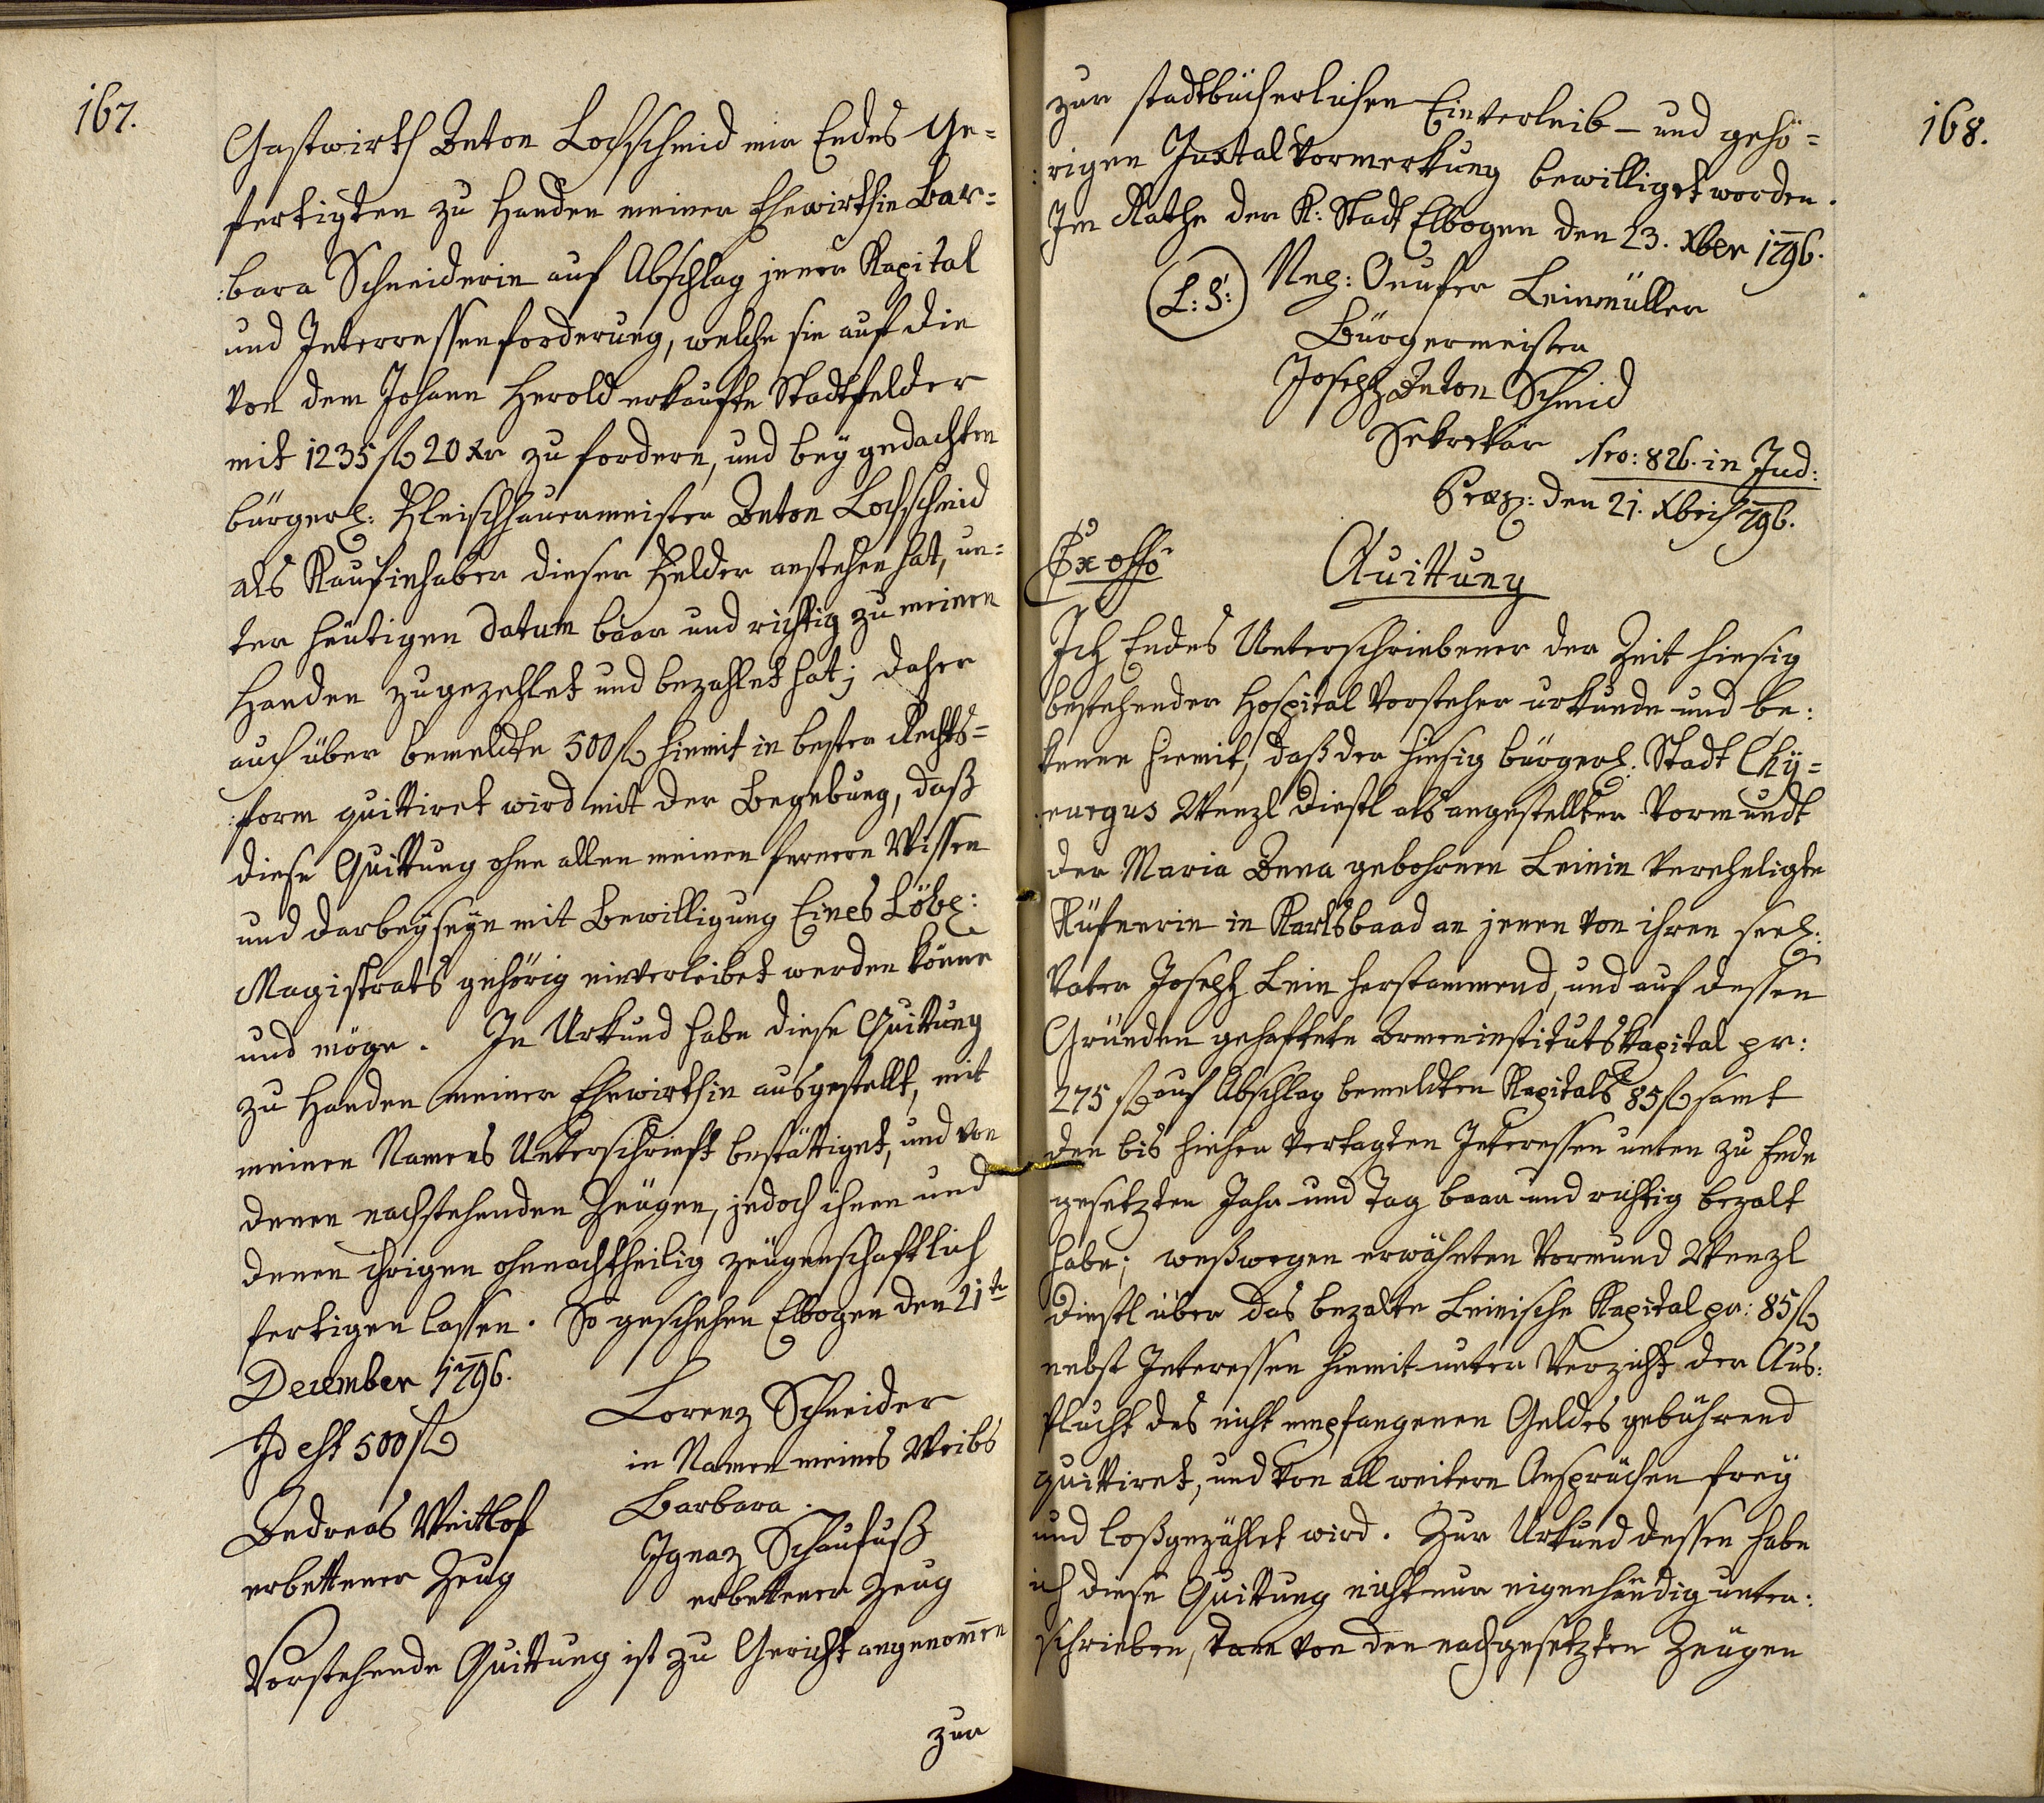 167.
Gastwirth Anton Lochschmid mir Endes Ge=
fertigten zu Handen meiner Ehewirthin Bar=
:bara Schneiderin auf Abschlag jener Kapital
und Interressenforderung, welche sie auf die
von dem Johann Herold erkaufte Stadtfelder
mit 1235 fl 20 xr zu fordern, und bey gedachten
bürgerl: Fleischhauermeister Anton Lochschmid
als Kaufinhaber dieser Felder anstehen hat, un=
ter heutigen Datum baar und richtig zu meinen
Handen zugezehlet und bezahlet hat; daher
auch über bemeldte 500 fl hiemit in bester Rechts=
:form quittiret wird mit der Begebung, daß
diese Quittung ohne allen meinen fernern Wissen
und darbeyseyn mit Bewilligung Eines Löbl:
Magistrats gehörig einverleibet werden könne
und möge. In Urkund habe diese Quittung
zu Handen meiner Ehewirthin ausgestellt, mit
meinen Namens Unterschrieft bestättiget, und von
denen nachstehenden Zeügen, jedoch ihnen und
denen ihrigen ohnnachtheilig zeügenschaftlich
fertigen lassen. So geschehen Elbogen den 21te
December 1796.
Id est 500 fl
Lorenz Schneider
in Namen meines Weibs
Barbara.
Andreas Weitlof
erbettener Zeug
Ignaz Schaufuß
erbettener Zeug
Vorstehende Quittung ist zu Gericht angenom̄en
zur
168.
zur stadtbücherlichen Einverleib- und gehö=
:rigen Juxtal Vormerkung bewilliget worden.
Im Rathe der K: Stadt Elbogen den 23. Xber 1796.
(L:S:)
Onufer Leinmüller
Bürgermeister
Joseph Anton Schmid
Sekretär
Nro: 826. in Jud:
Praes: den 21. Xbris 796.
Ex offo
Quittung
Ich Endes Unterschriebener der Zeit hiesig
bestehender Hospital Vorsteher urkunde und be:
kenne hiemit, daß der hiesig bürgerl: Stadt Chÿ=
:rurgus Wenzl Diestl als angestellter Vormundt
der Maria Anna gebohrnen Leinin vereheligte
Küfnerin in Karlsbaad an jenen von ihren seel:
Vater Joseph Lein herstammend, und auf dessen
Gründen gehaftete Armeninstitutskapital pr:
275 fl auf Abschlag bemeldten Kapitals 85 fl samt
den bis hieher vertagten Interessen unten zu Ende
gesetzten Jahr und Tag baar und richtig bezalt
habe; weßwegen erwähnten Vormund Wenzl
Diestl über das bezalte Leinische Kapital pr: 85 fl
nebst Interessen hiemit unter Verzicht der Aus:
flucht des nicht empfangenen Geldes gebührend
quittiret, und von all weitern Ansprüchen frey
und loßgezählet wird. Zur Urkund dessen habe
ich diese Quittung nicht nur eigenhändig unter:
schrieben, dann von den nachgesetzten Zeügen